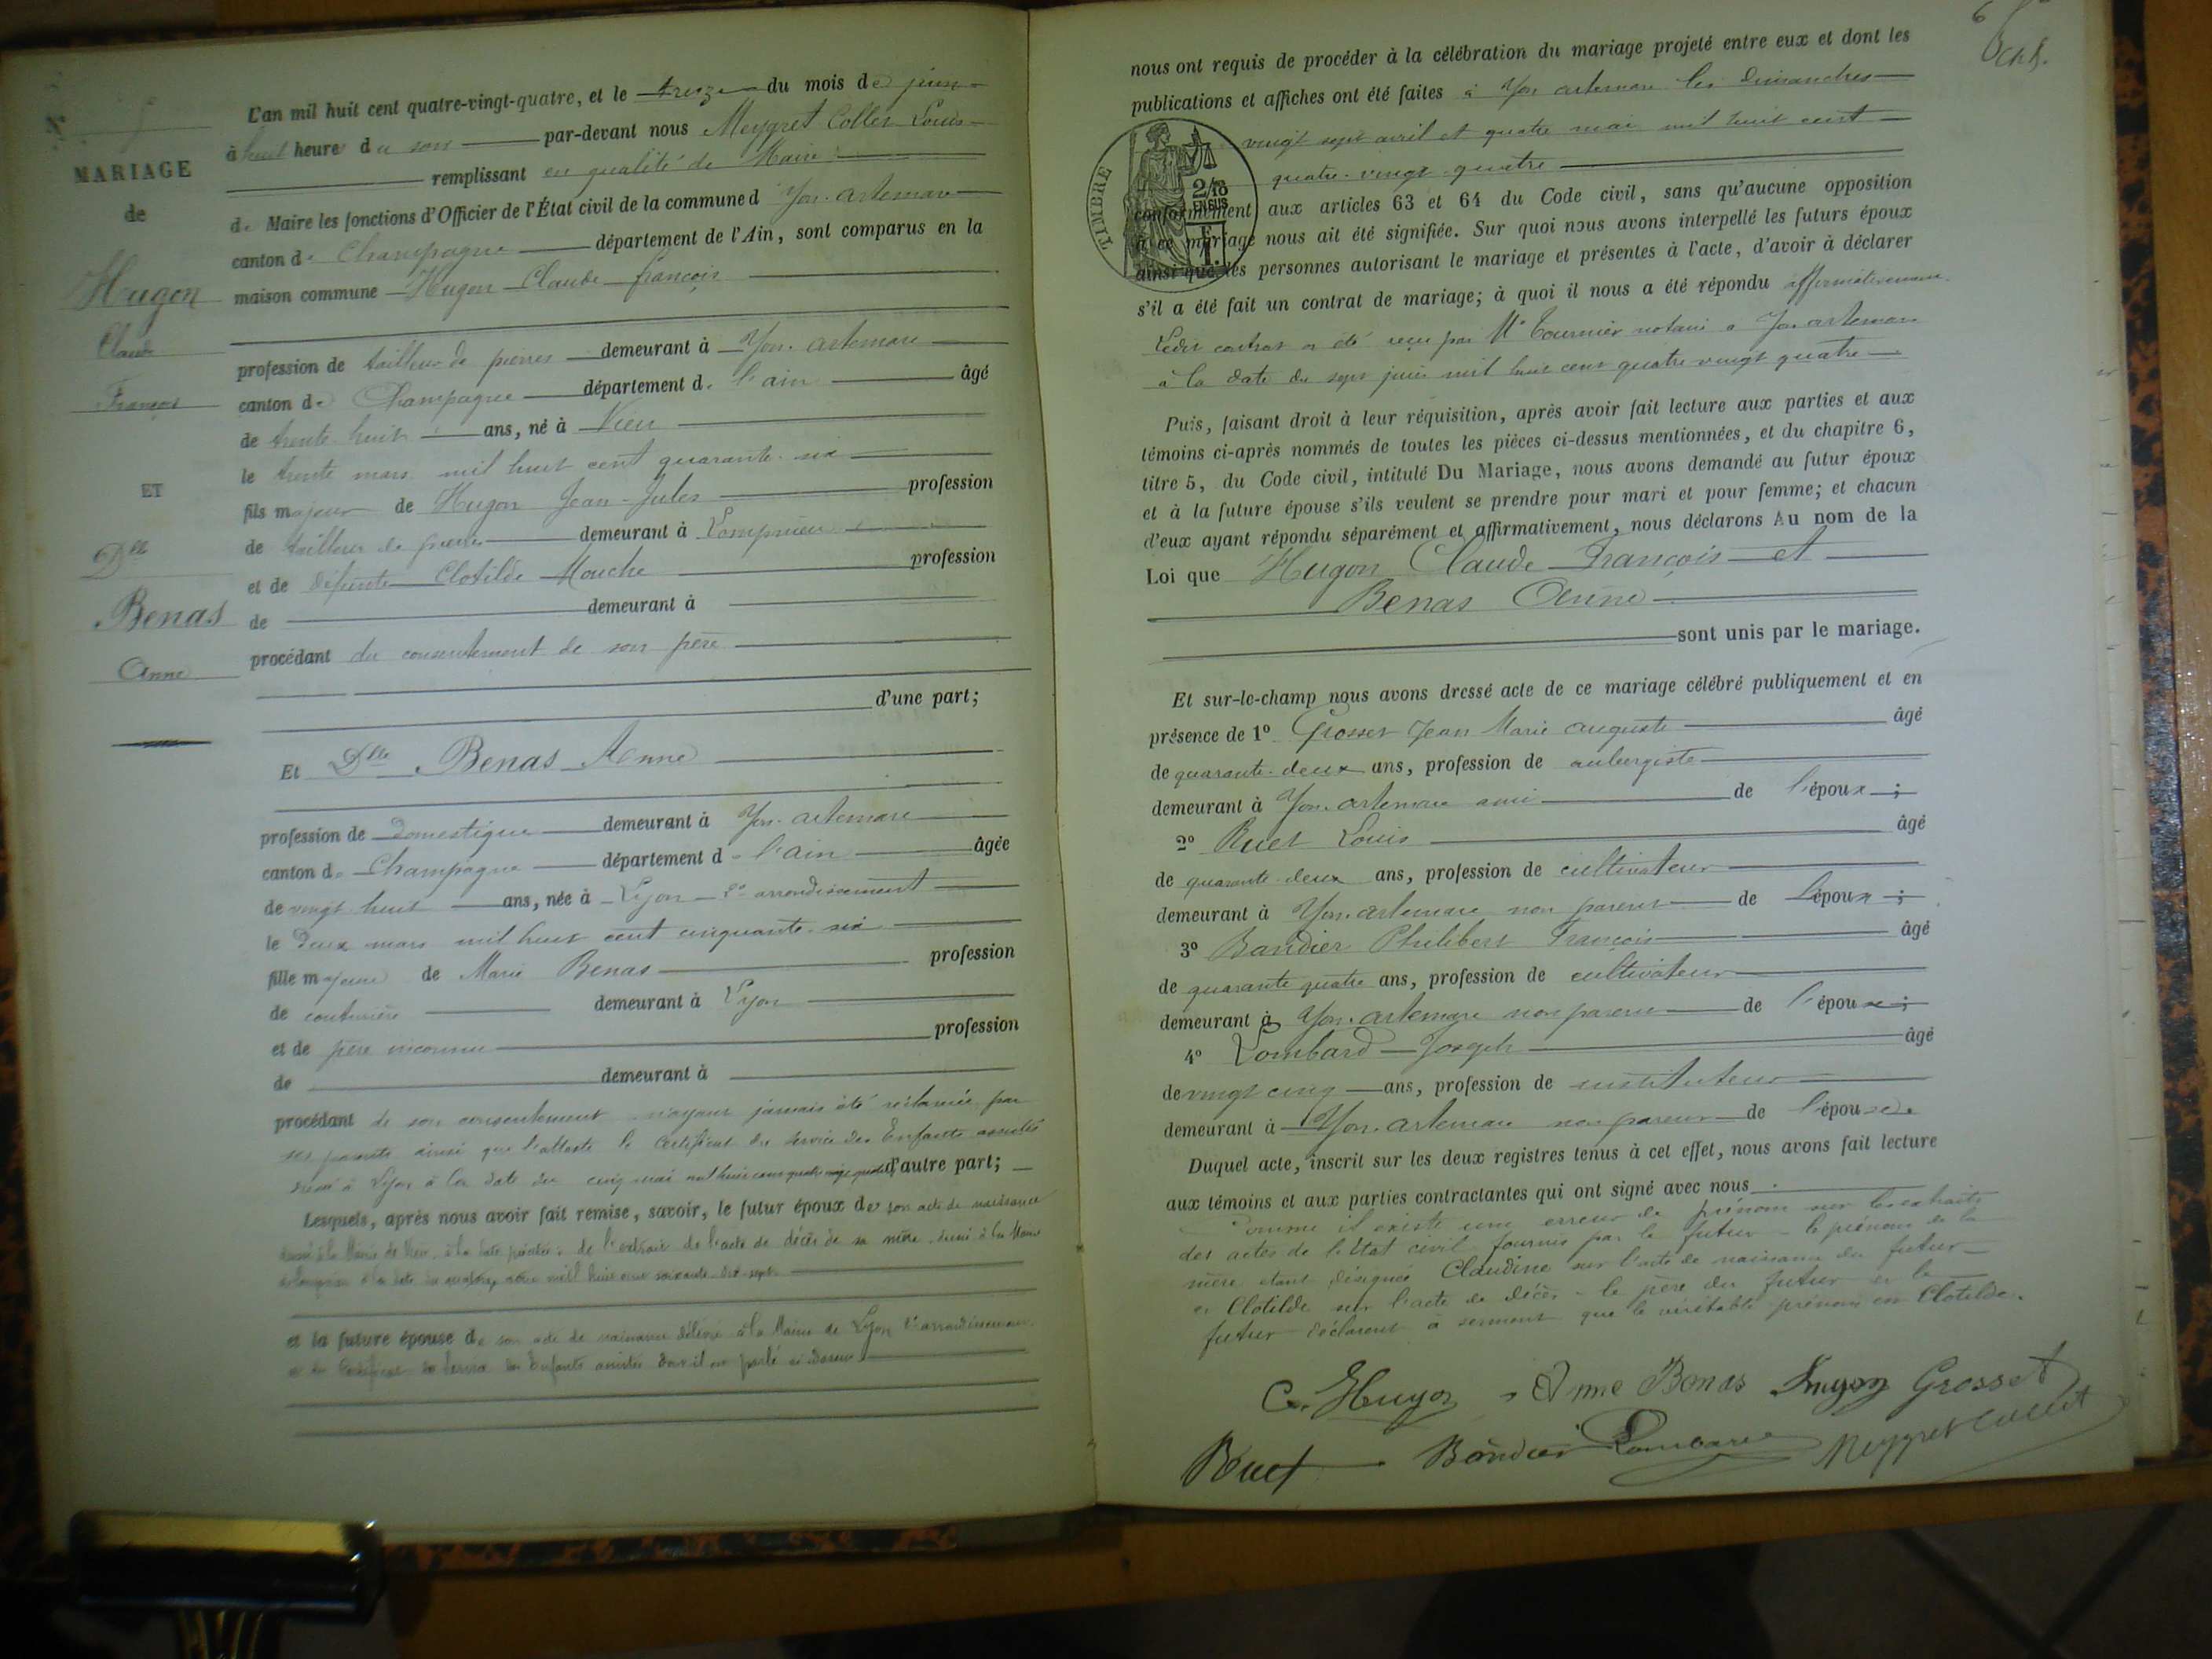 N° 5
MARIAGE
de
Hugon
Claude
François
ET
Dlle
Benas
Anne
L'an mil huit cent quatre-vingt-quatre, et le treize du mois de juin
à huit heures du soir par-devant nous Meygret Collet Louis
remplissant en qualité de Maire
de Maire les fonctions d'Officier de l'État civil de la commune d'Yon-artemare
canton de Champagne département de l'Ain, sont comparus en la
maison commune Hugon Claude François
profession de tailleur de pierres demeurant à Yon-artemare
canton de Champagne département de l'ain âgé
de trente huit ans, né à Vieu
le trente mars mil huit cent quarante-six
fils majeur de Hugon Jean-Jules profession
de tailleur de pierres demeurant à Lompnieu
et de défunte Clotilde Mouche profession
de demeurant à
procédant du consentement de son père
d'une part;
Et Dlle Benas Anne
profession de domestique demeurant à Yon-artemare
canton de Champagne département de l'ain âgée
de vingt huit ans, née à Lyon 2e arrondissement
le deux mars mil huit cent cinquante-six
fille majeure de Marie Benas profession
de couturière demeurant à Lyon
et de père inconnu profession
de demeurant à
procédant de son consentement n'ayant jamais été réclamée par
ses parents ainsi que l'atteste le Certificat du service des Enfants assistés
dressé à Lyon à la date du cinq mai mil huit cent quatre vingt quatre d'autre part;
Lesquels, après nous avoir fait remise, savoir, le futur époux de son acte de naissance
dressé à la Mairie de Vieu, à la date précitée, de l'extrait de l'acte de décès de sa mère, dressé à la Mairie
de Lompnieu à la date du quatorze mil huit cent soixante-dix-sept.
et la future épouse de son acte de naissance délivré à la Mairie de Lyon 2e arrondissement
et du Certificat du Service des Enfants assistés dont il est parlé ci-dessus
6
nous ont requis de procéder à la célébration du mariage projeté entre eux et dont les
publications et affiches ont été faites à Yon artemare les dimanches
vingt sept avril et quatre mai mil huit cent
quatre-vingt-quatre
TIMBRE
conformément aux articles 63 et 64 du Code civil, sans qu'aucune opposition
à ce mariage nous ait été signifiée. Sur quoi nous avons interpellé les futurs époux
ainsi que les personnes autorisant le mariage et présentes à l'acte, d'avoir à déclarer
s'il a été fait un contrat de mariage; à quoi il nous a été répondu affirmativement
Ledit contrat a été reçu par Me Tournier notaire à Yon artemare
à la date du sept juin mil huit cent quatre vingt quatre
Puis, faisant droit à leur réquisition, après avoir fait lecture aux parties et aux
témoins ci-après nommés de toutes les pièces ci-dessus mentionnées, et du chapitre 6,
titre 5, du Code civil, intitulé Du Mariage, nous avons demandé au futur époux
et à la future épouse s'ils veulent se prendre pour mari et pour femme; et chacun
d'eux ayant répondu séparément et affirmativement, nous déclarons Au nom de la
Loi que Hugon Claude François et
Benas Anne
sont unis par le mariage.
Et sur-le-champ nous avons dressé acte de ce mariage célébré publiquement et en
présence de 1° Grosset Jean Marie auguste âgé
de quarante-deux ans, profession de aubergiste
demeurant à Yon-artemare ami de l'époux;
2° Ruet Louis âgé
de quarante-deux ans, profession de cultivateur
demeurant à Yon-artemare non parent de l'époux;
3° Bandier Philibert François âgé
de quarante quatre ans, profession de cultivateur
demeurant à Yon-artemare non parent de l'époux;
4° Lombard Joseph âgé
de vingt cinq ans, profession de instituteur
demeurant à Yon-artemare non parent de l'épouse.
Duquel acte, inscrit sur les deux registres tenus à cet effet, nous avons fait lecture
aux témoins et aux parties contractantes qui ont signé avec nous.
Comme il existe une erreur de prénom sur les extraits
des actes de l'Etat civil fournis par le futur - le prénom de la
mère étant désigné Claudine sur l'acte de naissance du futur
et Clotilde sur l'acte de décès - le père du futur et le
futur déclarent à serment que le véritable prénom est Clotilde.
C. Hugon Anne Benas Hugon Grosset
Ruet Bandier Lombard Meygret Collet